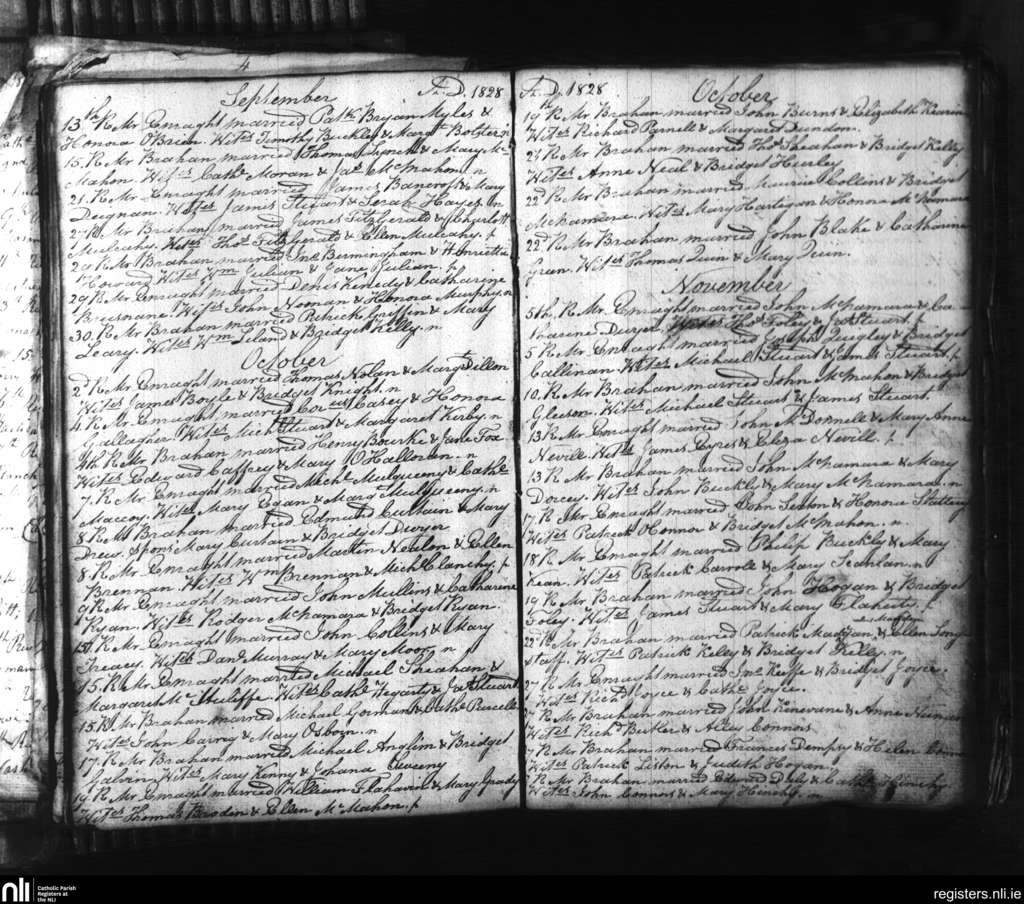 4
September A.D. 1828
13th R. Mr Enraght married Patk Bryan Myles &
Honora OBrien. Wit.es Timothy Buckley & Margt Bolster. n
15. R. Mr Brahan married Thomas Lynch & Mary Mc
Mahon. Wit.es Cathe Moran & Jas McMahon. n
21. R. Mr Enraght married James Bancroft & Mary
Deegnan. Wit.es James Stuart & Sarah Hayes. n
27 R. Mr Brahan married James Fitzgerald & Charlott
Mulcahy. Wit.es Thos Fitzgerald & Ellen Mulcahy. p
29 R. Mr Brahan married Jno Bermingham & Henrietta
Howard Wit.es Wm Julian & Jane Julian. p
29 R. Mr Enraght married Denis Kenedy & Catharine
Bresnane. Wit.es John Noonan & Honora Murphy. n
30. R. Mr Brahan married Patrick Griffin & Mary
Leary. Wit.es Wm Leland & Bridget Kelly. n
October
2d R. Mr Enraght married Thomas Nolan & Margt Dillon
Wit.es James Boyle & Bridget Knight. n
4 R. Mr Enraght married Cor.us Casey & Honora
Gallagher Wit.es Mich Stuart & Margaret Kirby. n
4th R. Mr Brahan married Henry Bourke & Jane Fox
Wit.es Edward Caffrey & Mary O'Halloran. n
7. R. Mr Enraght married Michl Mulqueeny & Cathe
Maccoy. Wit.es Mary Egan & Marg Mulqueeny. n
8 R. Mr Brahan married Edmund Curtain & Mary
Drew. Spons Mary Curtain & Bridget Dwyer
8. R. Mr Enraght married Martin Neylon & Ellen
Brennan. Wit.es Wm Brennan & Michl Clanchy. p
9 R. Mr Enraght married John Mullens & Catharine
Ryan. Wit.es Rodger McNamara & Bridget Ryan.
R. Mr Enraght married John Collins & Mary
Treacy. Wit.es Danl Murray & Mary Moor. n
15. R. Mr Enraght married Michael Sheahan &
Margaret McAuliffe. Wit.es Cathe Hegarty & Jas Stuart
15. R. Mr Brahan married Michael Gorman & Cathe Purcell
Wit.es John Carrig & Mary Osborn. n
17. R. Mr Brahan married Michael Anglim & Bridget
Galvin. Wit.es Mary Kenny & Johana
19 R. Mr Enraght married William Flahavin & Mary Grady
Wit.es Thomas Bowden & Ellen McMahon. p
A.D. 1828 October
19th R. Mr Brahan married John Burns & Elizabeth Kearin
Wit.es Richard Parnell & Margaret Dundon.
21 R. Mr Brahan married Thos Sheahan & Bridget Kelly
Wit.es Anne Neal & Bridget Hurley
22 R. Mr Brahan married Maurice Collins & Bridget
McNamara. Wit.es Mary Hartigan & Honora McNamara
22. R. Mr Brahan married John Blake & Catharine
Green. Wit.es Thomas Quin & Mary Quin.
November
5th. R. Mr. Enraght married John McNamara & Ca
tharine Dwyer. Wit.es Thos Foley & Jas Stuart. p
5 R. Mr. Enraght married Joseph Quigley & Bridget
Callinan. Wit.es Michael Stuart & James Stuart. p
10. R. Mr Brahan married John McMahon & Bridget
Gleeson. Wit.es Michael Stuart & James Stuart.
13 R. Mr. Enraght married John A. Donnell & Mary Anne
Nevill. Wit.es James Eyres & Eliza Nevill. p
13 R. Mr Brahan married John McNamara & Mary
Dorcey. Wit.es John Buckley & Mary McNamara. n
17. R. Mr Enraght married John Sexton & Honora Slattery
Wit.es Patrick Honnor & Bridget McMahon. n.
18 R. Mr. Enraght married Philip Buckley & Mary
Kean. Wit.es Patrick Carroll & Mary Scanlan. n
19 R. Mr Brahan married John Hogan & Bridget
Foley. Wit.es James Stuart & Mary Flaherty. p
22 R. Mr Brahan married Patrick Madigan & Ellen Long
staff. Wit.es Patrick Kiley & Bridget Kelly. n
27 R. Mr Enraght married Jno Keeffe & Bridget Joyce.
Wit.es Richd Joyce & Cathe Joyce.
R. Mr Brahan married John Kenevane & Anne
Wit.es Rich Butler & Alley Connors
R. Mr Brahan married Frances Dempsy & Helen
Wit.es Patrick Liston & Judith Hogan.
R. Mr Brahan married Edmund Daly & Cathe Hinchy.
Wit.es John Connors & Mary Hinchy. n
nli
Catholic Parish
Registers at
the NLI
registers.nli.ie